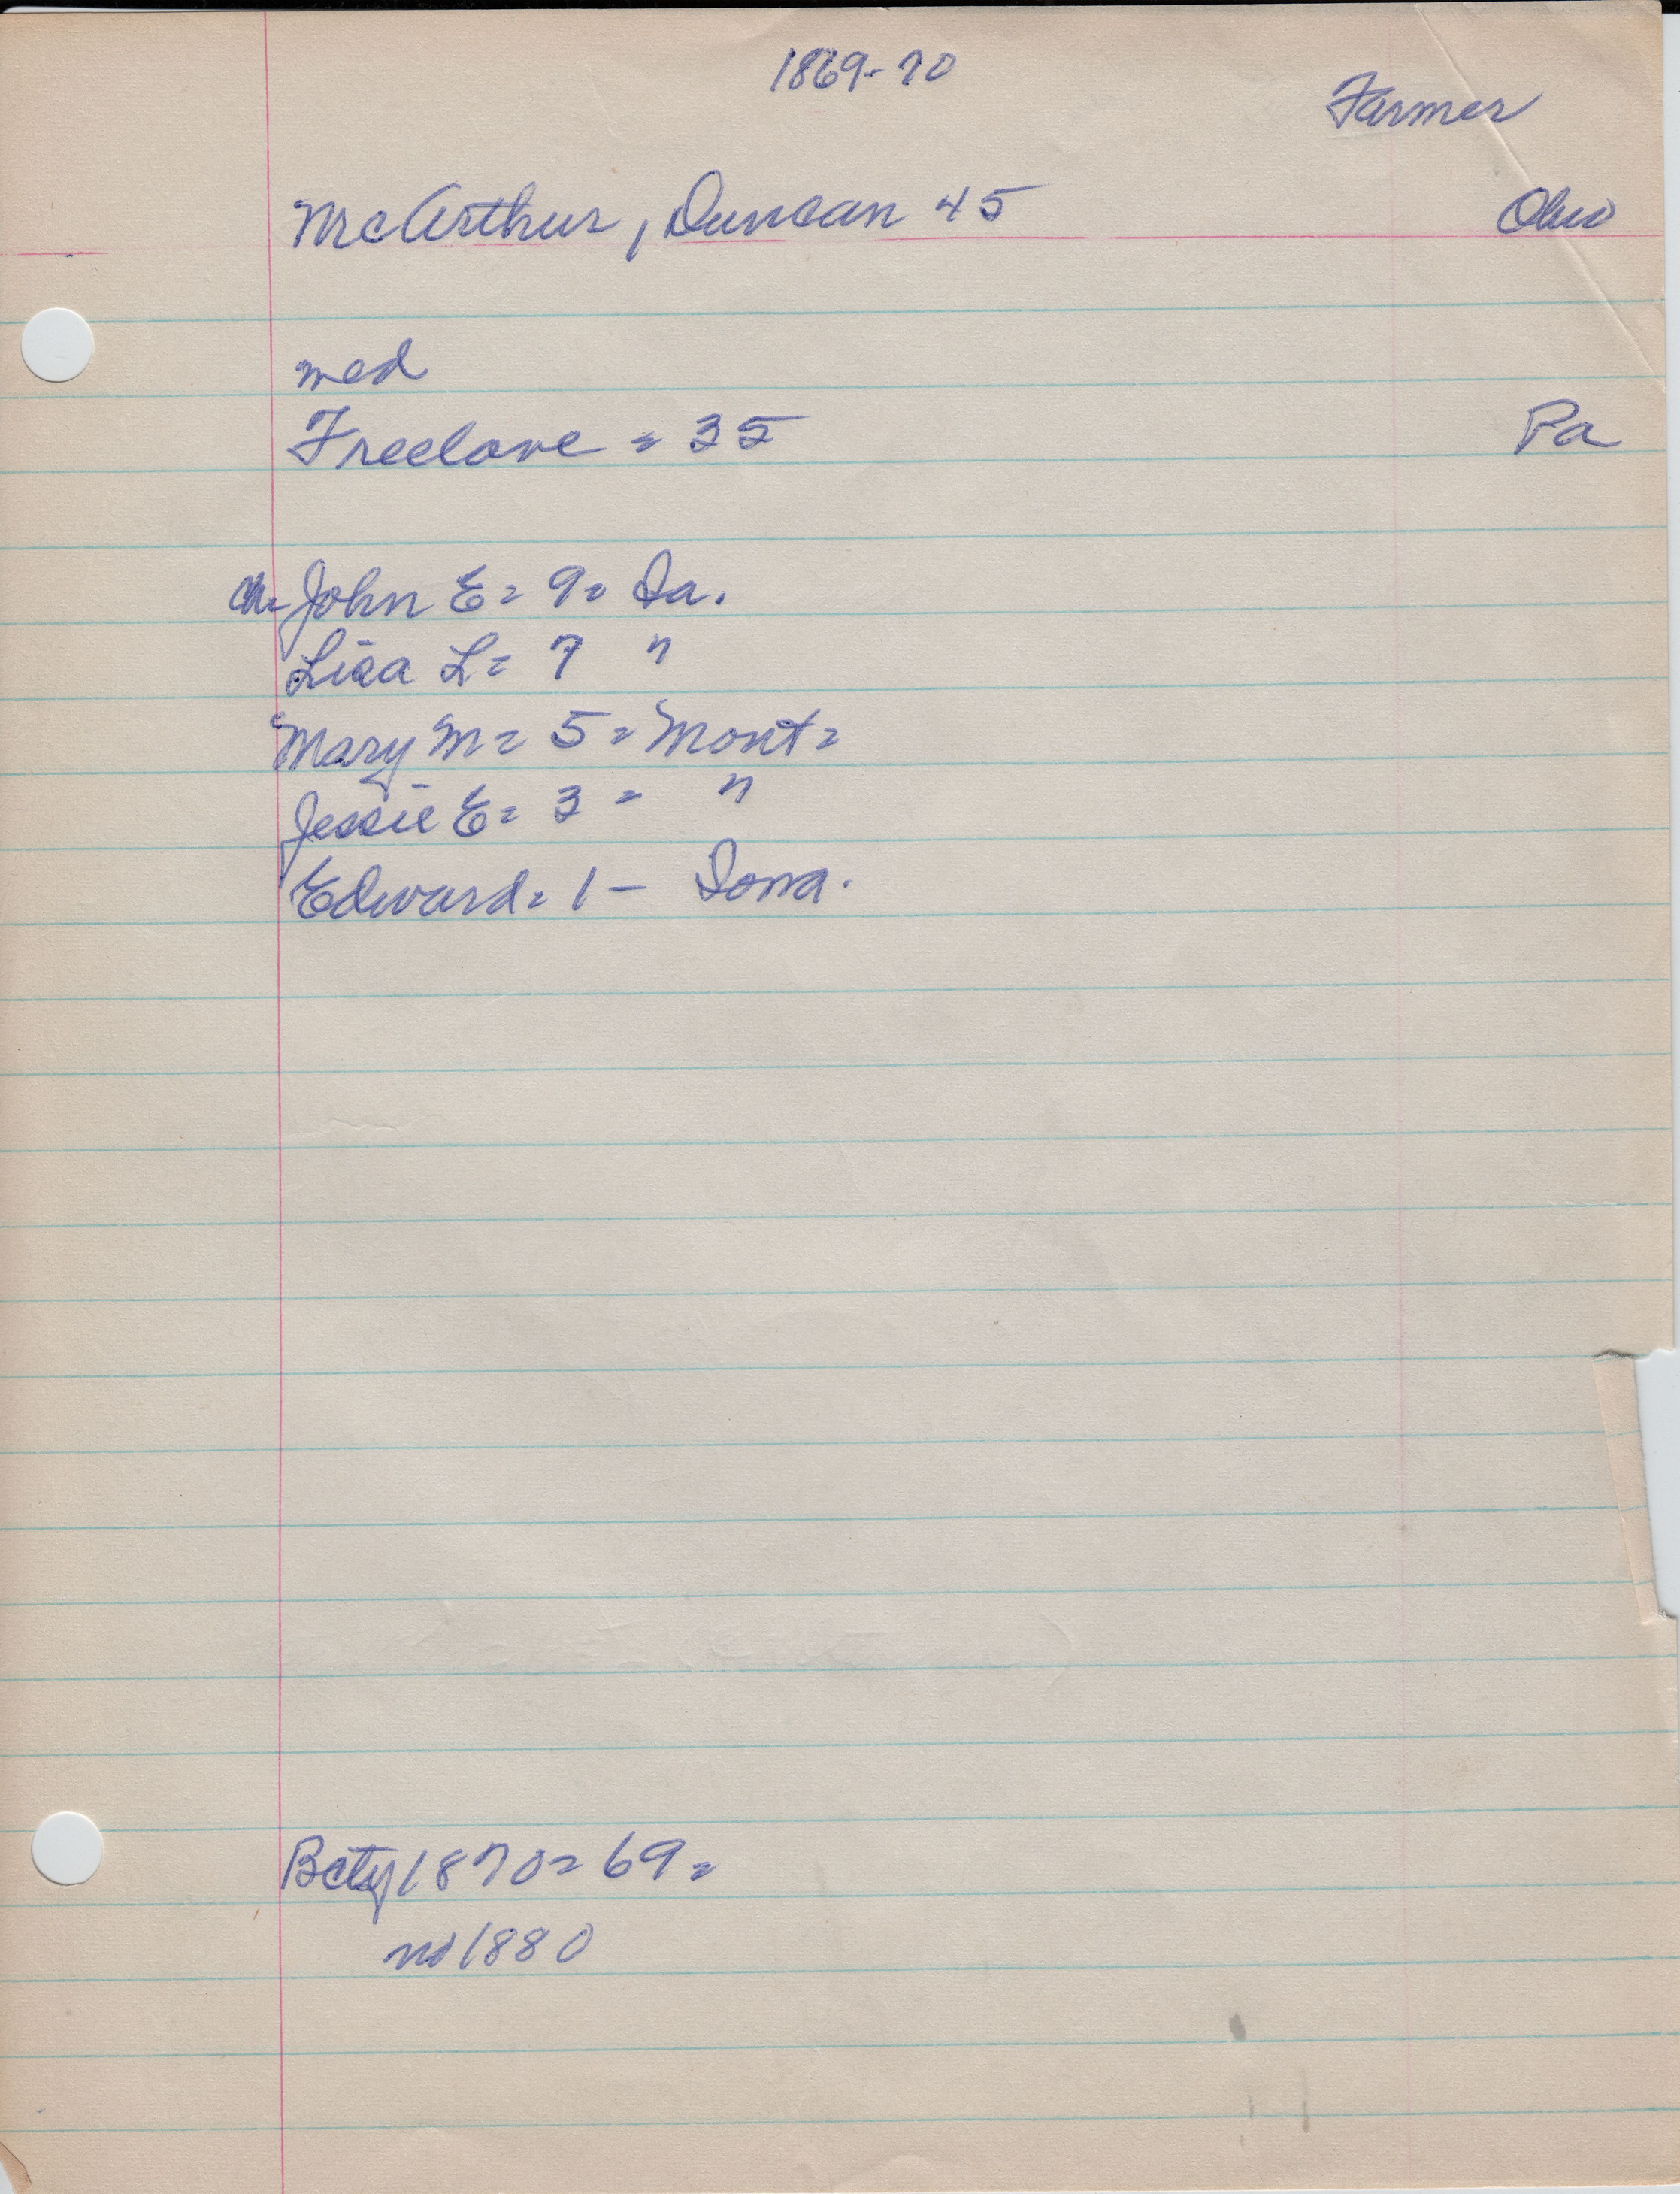 1869-70
Farmer
McArthur, Duncan 45 Ohio
med
Freelove = 35 Pa
Ch= John E= 9= Ia.
Lisa L= 7 "
Mary M= 5= Mont=
Jessie E= 3 = "
Edward= 1 - Iowa.
Bcty 1870= 69=
no 1880